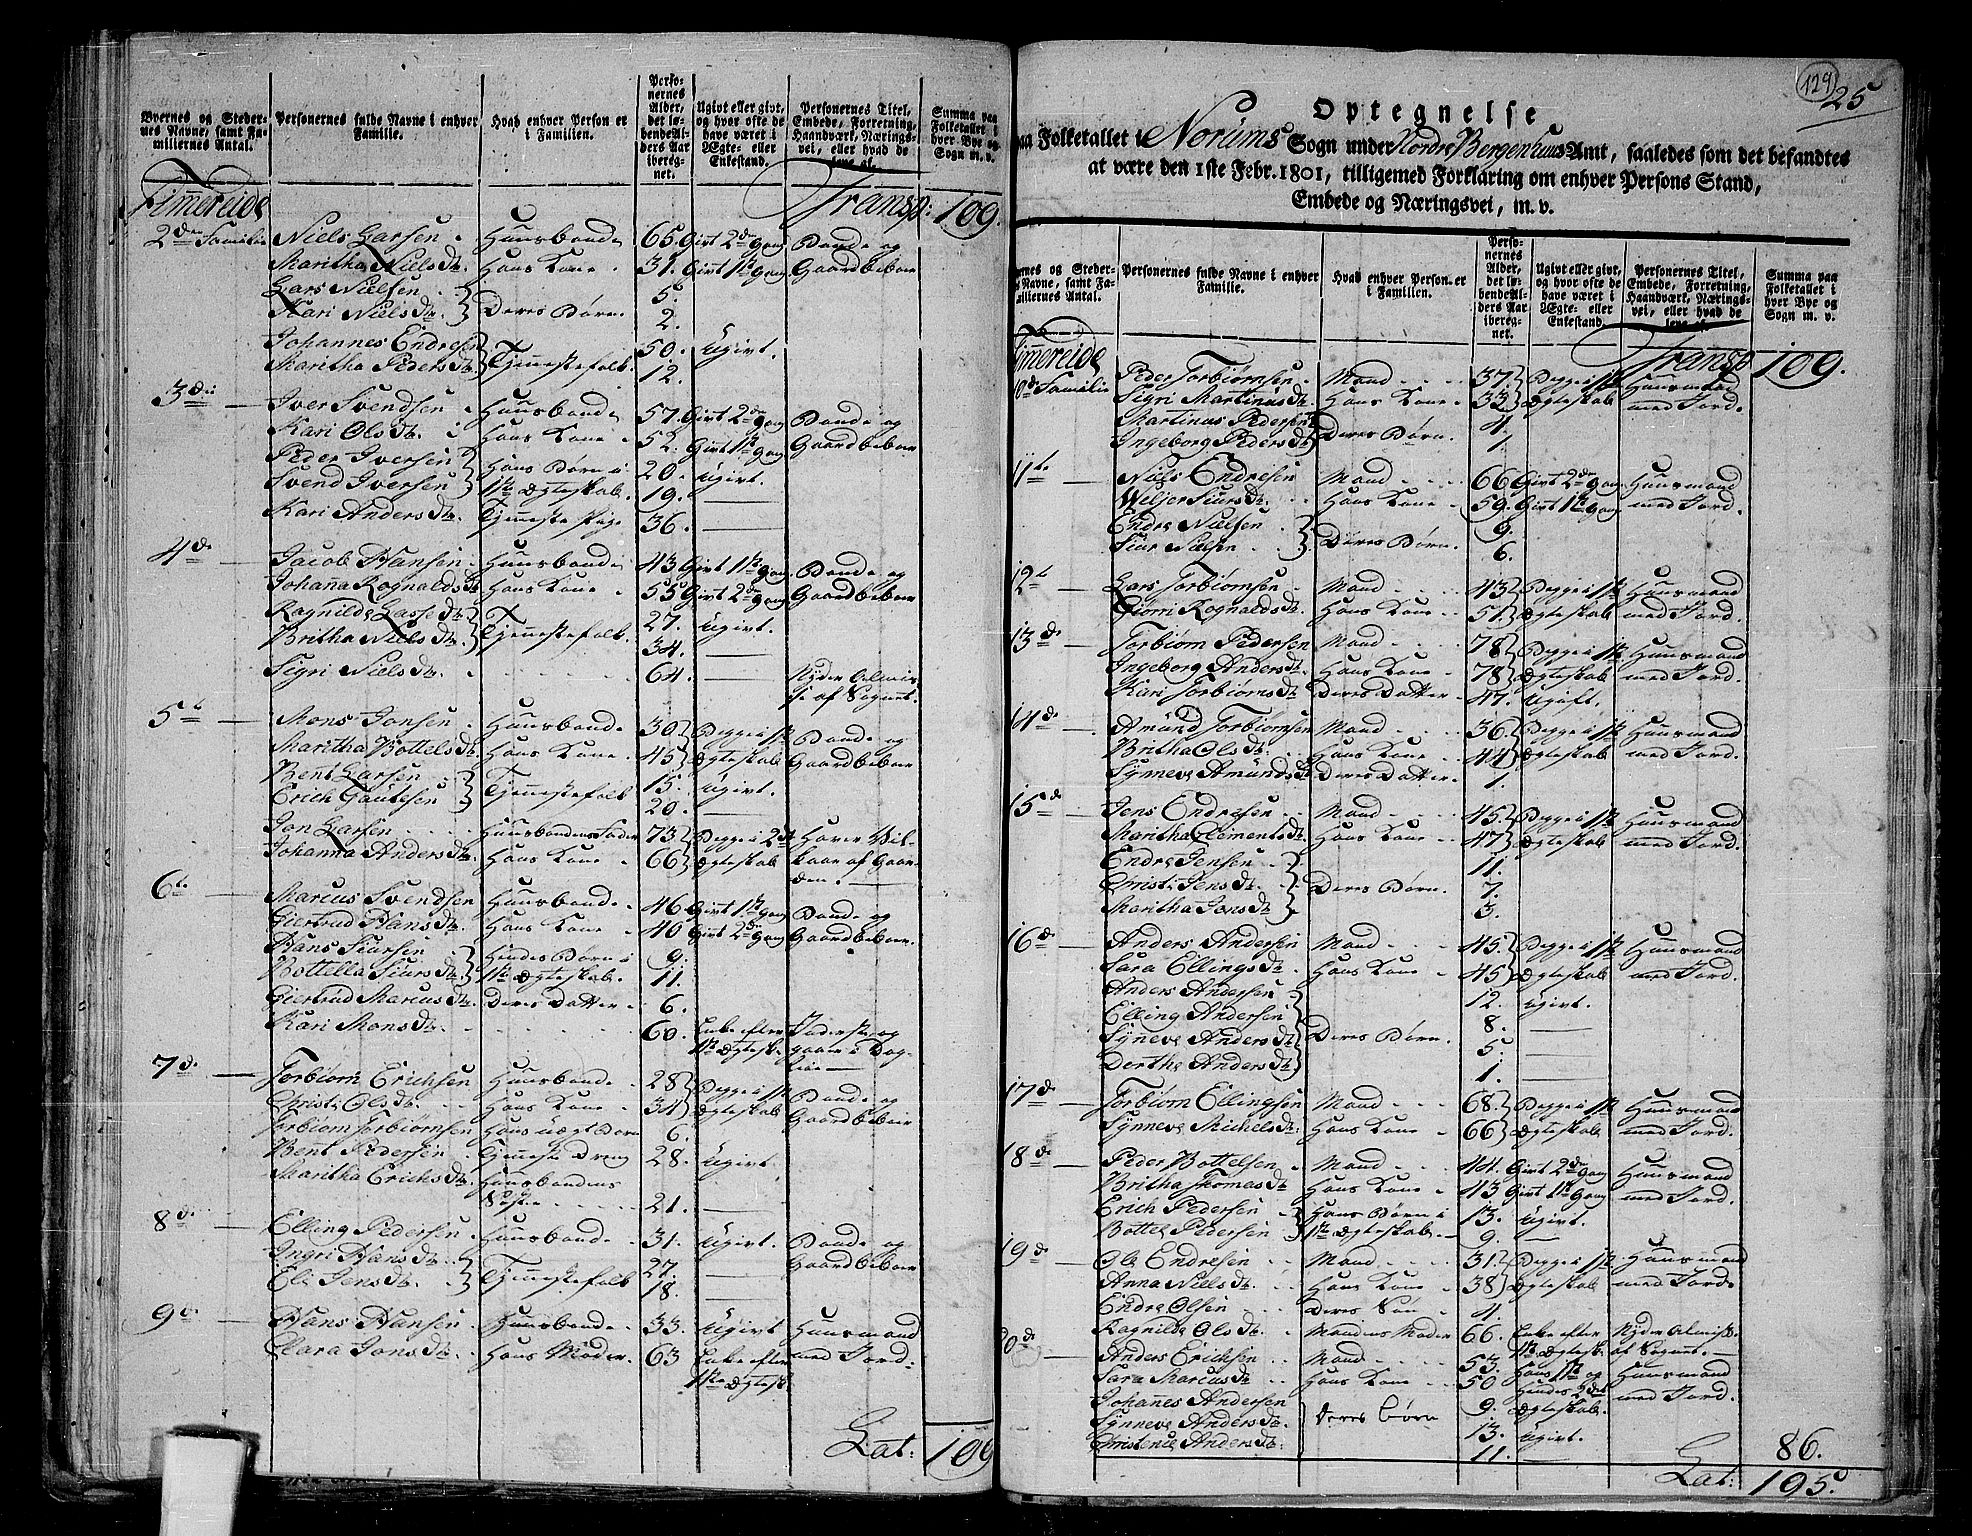 Byernes og Stedernes Navne, samt Familiernes Antal.
Personernes fulde Navne i enhver Familie.
Hvad enhver Person er i Familien.
Personernes Alder, det løbende Alders Aar iberegnet.
Ugivt eller givt, og hvor ofte de have været i Ægte- eller Enkestand.
Personernes Titel, Embede, Forretning, Haandværk, Næringsvei, eller hvad de leve af.
Summa paa Folketallet i hver Bye og Sogn m. v.
Timereide Transp: 109.
2den Familie Niels Larsen Huusbonde 65. Givt 2den gang Bonde og
Maritha Niels Dtr. Hans Kone 31. Givt 1ste gang Gaardbeboer
Lars Nielsen 5.
Kari Niels Dtr. Deres Børn 2.
Johannes Endresen 50. Ugivt.
Maritha Peders Dtr. Tjenestefolk 12.
3die Iver Svendsen Huusbonde 57. Givt 2de gang Bonde og
Kari Ols Dtr. Hans Kone 52. Givt 1ste gang Gaardbeboer
Peder Iversen Hans Børn i 20. Ugivt.
Svend Iversen 1ste Ægteskab. 19. —
Kari Anders Dtr. Tjeneste Pige 36. —
4de Jacob Hansen Huusbonde 43 Givt 1ste gang Bonde og
Johana Rognalds Dtr. Hans Kone 55 Givt 2den gang Gaardbeboer
Ragnilde Lasse Dtr. 27. Ugivt.
Britha Niels Dtr. Tjenestefolk. 34. —
Sigri Niels Dtr. 64. — Nyder Almis-
se af Sognet.
5te Mons Jonsen Huusbonde 30 Begge i 1ste Bonde og
Maritha Bottels Dtr. Hans Kone 45 Ægteskab Gaardbeboer
Bent Larsen 15. Ugivt.
Erich Gautesen Tjenestefolk 20. —
Jon Larsen Huusbondens Fader 73 Begge i 2det Haver Vil-
Johanna Anders Dtr. Hans Kone 66 Ægteskab kaar af Gaar-
den.
6te Marcus Svendsen Huusbonde 46 Givt 1ste gang Bonde og
Giertrud Hans Dtr. Hans Kone 40 Givt 2den gang Gaardbeboer.
Hans Siursen Hendes Børn i 9.
Bottella Siurs Dtr. 1ste Ægteskab. 11.
Giertrud Marcus Dtr. Deres Datter 6.
Kari Mons Dtr. 60. Enke efter
1ste Ægtesk.
7de Torbiørn Erichsen Huusbonde 28 Begge i 1ste Bonde og
Christi Ols Dtr. Hans Kone 31 Ægteskab Gaardbeboer
Torbiørn Torbiørnsen Hans uægte Børn 6.
Bent Pedersen Tjeneste Dreng 28. Ugivt.
Maritha Erichs Dtr. Huusbondens
Søster 21. —
8de Elling Pedersen Huusbonde 31. Ugivt. Bonde og
Ingri Hans Dtr. 27. — Gaardbeboer
Eli Jens Dtr. Tjenestefolk 18. —
9de Hans Hansen Huusbonde 33. Ugivt Huusmand
Clara Jons Dtr. Hans Moder 63 Enke efter med Jord.
1ste Ægtesk.
Lat: 109
129
25
Optegnelse
paa Folketallet i Norums Sogn under Nordre Bergenhuus Amt, saaledes som det befandtes
at være den 1ste Febr. 1801, tilligemed Forklaring om enhver Persons Stand,
Embede og Næringsvei, m. v.
Personernes fulde Navne i enhver Familie.
Hvad enhver Person er i Familien.
Personernes Alder, det løbende Alders Aar iberegnet.
Ugivt eller givt, og hvor ofte de have været i Ægte- eller Enkestand.
Personernes Titel, Embede, Forretning, Haandværk, Næringsvei, eller hvad de leve af.
Summa paa Folketallet i hver Bye og Sogn m. v.
Timereide Transp 109.
10de Familie Peder Torbiørnsen Mand 37. Begge i 1ste Huusmand
Sigri Martinus Dtr. Hans Kone 33 Ægteskab med Jord.
Martinus Pedersen 4.
Ingeborg Peders Dtr. Deres Børn. 1.
11te Niels Endresen Mand 66 Givt 2den gang Huusmand
Weljer Siurs Dtr. Hans Kone 59. Givt 1ste gang med Jord.
Endre Nielsen 9.
Siur Nielsen Deres Børn. 6.
12te Lars Torbiørnsen Mand 43 Begge i 1ste Huusmand
Rognalds Dtr. Hans Kone 51. Ægteskab med Jord.
13de Torbiørn Pedersen Mand 78 Begge i 1ste Huusmand
Ingeborg Anders Dtr. Hans Kone 78 Ægteskab med Jord.
Kari Torbiørns Dtr. Deres Datter 47. Ugift.
14de Amund Torbiørnsen Mand 36. Begge i 1ste Huusmand
Britha Ols Dtr. Hans Kone 44 Ægteskab med Jord.
Synneve Amunds Dtr. Deres Datter. 1.
15de Jens Endresen Mand 45. Begge i 1ste Huusmand
Maritha Clements Dtr. Hans Kone 47 Ægteskab med Jord.
Endre Jensen 11.
Christi Jens Dtr. Deres Børn. 7.
Maritha Jens Dtr. 3.
16de Anders Andersen Mand 45. Begge i 1ste Huusmand
Sara Ellings Dtr. Hans Kone 45 Ægteskab med Jord.
Anders Andersen 12. Ugivt.
Elling Andersen 8. —
Syneve Anders Dtr. Deres Børn. 5. —
Dorthe Anders Dtr. 1. —
17de Torbiørn Ellingsen Mand 68. Begge i 1ste Huusmand
Synneve Michels Dtr. Hans Kone 66 Ægteskab med Jord.
18de Peder Bottelsen Mand 44. Givt 2den gang Huusmand
Britha Thomas Dtr. Hans Kone 43 Givt 1ste gang med Jord.
Erich Pedersen Hans Børn i 13. Ugivt.
Bottel Pedersen 1ste Ægteskab. 9. —
19de Ole Endresen Mand 31. Begge i 1ste Huusmand
Anna Niels Dtr. Hans Kone 38 Ægteskab med Jord.
Endre Olsen Deres Søn 4.
Ragnilde Ols Dtr. Mandens Moder 66. Enke efter Nyder Almisse
1ste Ægtesk. af Sognet.
20de Anders Erichsen Mand 53. Hans 1ste og Huusmand
Sara Marcus Dtr. Hans Kone 50 Hendes 2det med Jord.
Johanes Andersen 9. Ægteskab.
Synneve Anders Dtr. Deres Børn 13. Ugivt.
Christence Anders Dtr. 11. —
86.
Lat: 195.